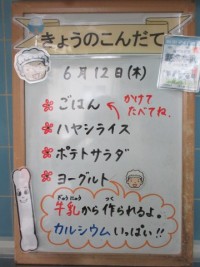 きょうのこんだて
6月12日(木)
ごはん
かけて
たべてね。
ハヤシライス
ポテトサラダ
ヨーグルト
牛乳から作られるよ。
ぎゅうにゅう つく
カルシウムいっぱい!!